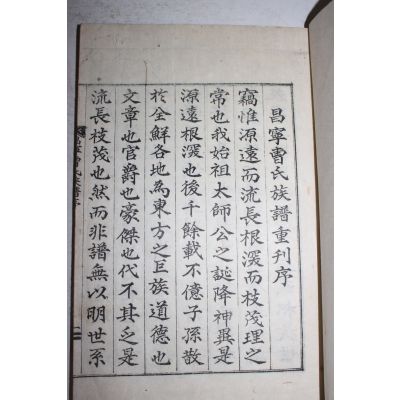 昌寧曺氏族譜重刊序
竊惟源遠而流長根深而枝茂理之
常也我始祖太師公之誕降神異是
源遠根深也後千餘載不億子孫散
於全鮮各地為東方之巨族道德也
文章也官爵也豪傑也代不其乏是
流長枝茂也然而非譜無以明世系
曺氏族譜序